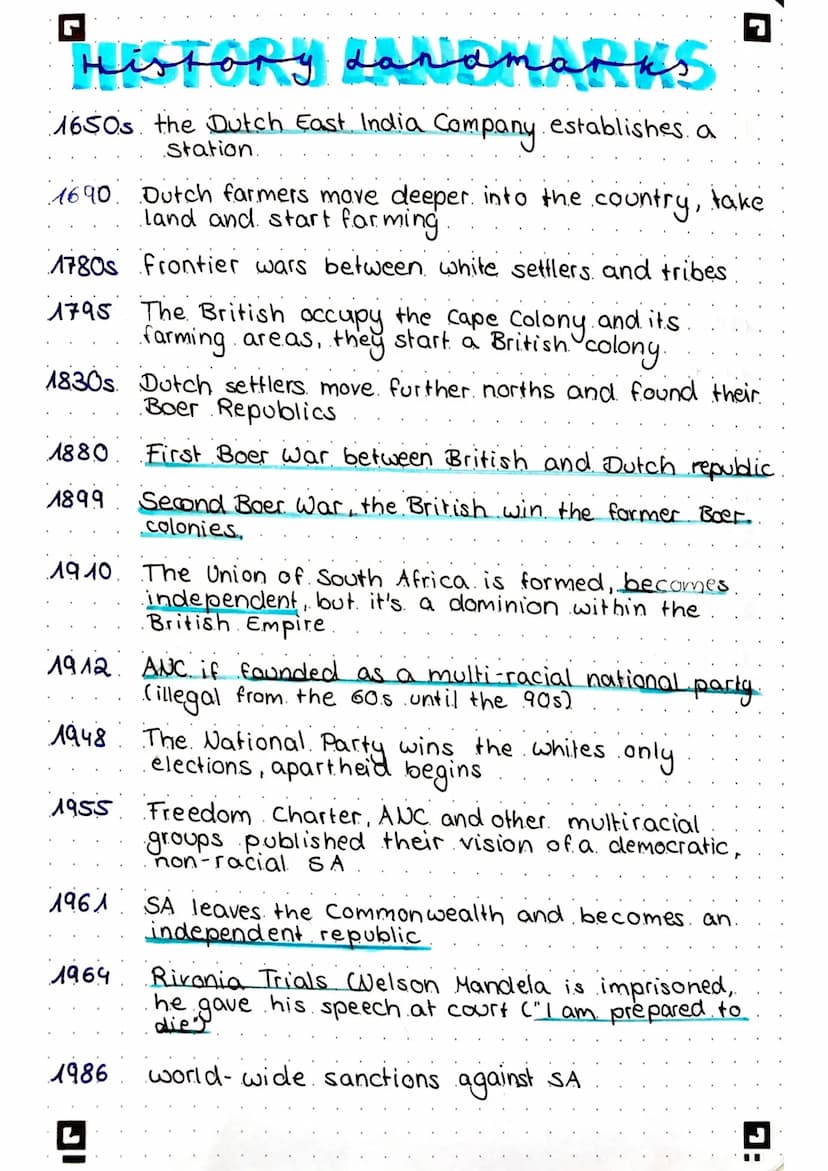 HISTORY LANDMARKS
1650s the Dutch East India Company establishes a
station
1690 Dutch farmers move deeper into the country, take
land and start farming
1780s frontier wars between white settlers and tribes
1795 The British occupy the Cape Colony and its
farming areas, they start a British colony
1830s Dutch settlers move further norths and found their
Boer Republics
1880 First Boer War between British and Dutch republic
1899 Second Boer War, the British win the former Boer
colonies.
1910 The Union of South Africa is formed, becomes
independent, but it's a dominion within the
British Empire
1912 ANC if founded as a multi-racial national party
(illegal from the 60s until the 90s)
1948 The National Party wins the whites only
elections, apartheid begins
1955 Freedom Charter, ANC and other multiracial
groups published their vision of a democratic,
non-racial SA
1961 SA leaves the Commonwealth and becomes an
independent republic
1964 Rivonia Trials (Nelson Mandela is imprisoned,
he gave his speech at court ("I am prepared to
die")
1986 world-wide sanctions against SA